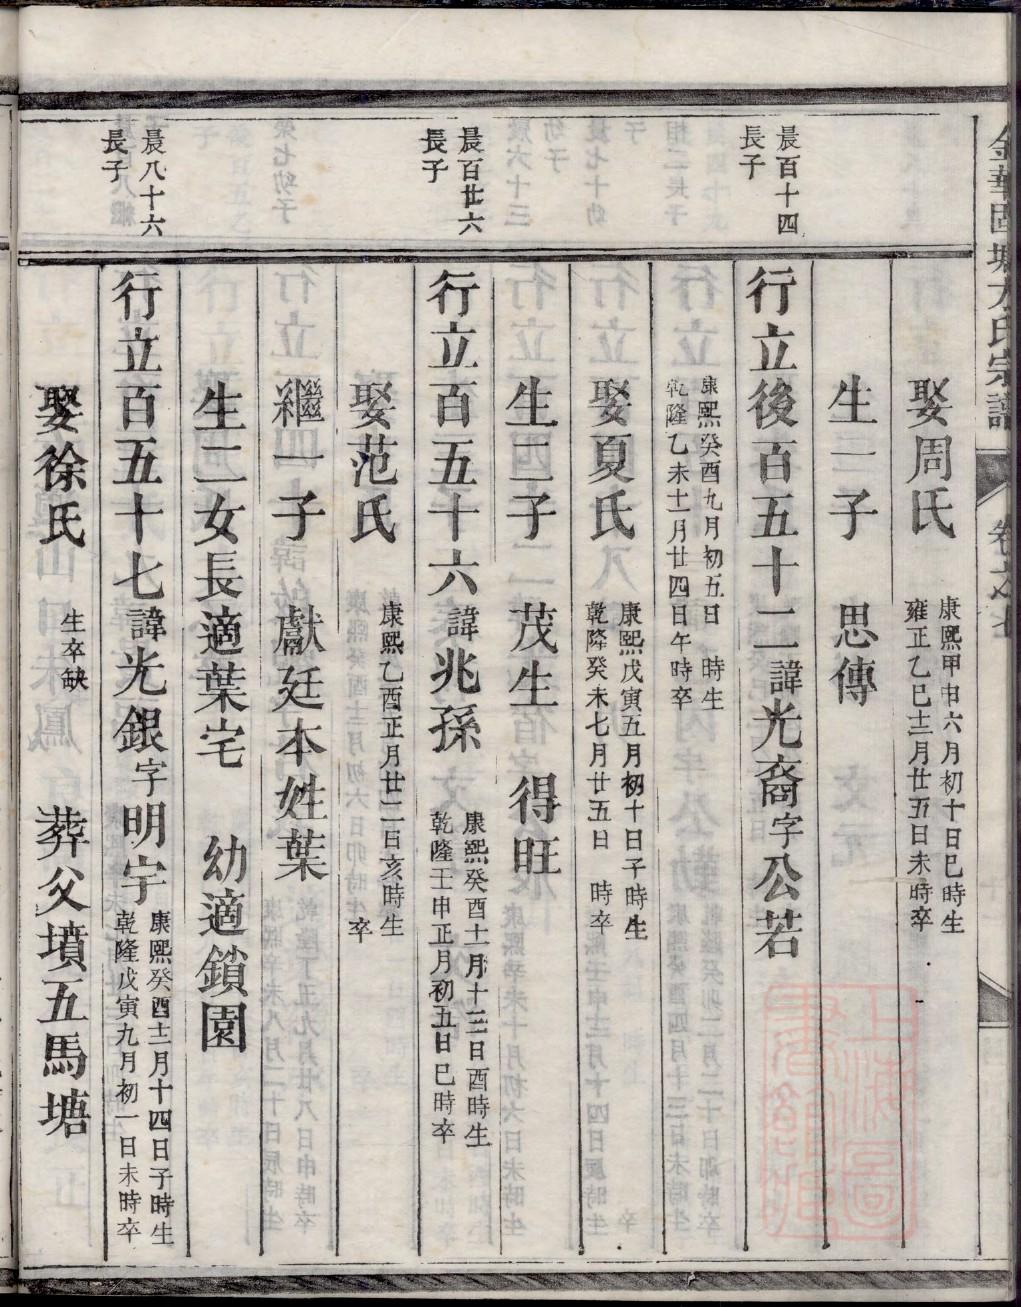 金華国塘方氏宗譜 卷之七
娶周氏 康熙甲申六月初十日巳時生
雍正乙巳十二月廿五日未時卒
生一子 思傳
晨百十四
長子
行立後百五十二諱光裔字公若
康熙癸酉九月初五日 時生
乾隆乙未十月廿四日午時卒
娶夏氏 康熙戊寅五月初十日子時生
乾隆癸未七月廿五日 時卒
生二子 茂生 得旺
晨百廿六
長子
行立百五十六諱兆孫 康熙癸酉十一月十三日酉時生
乾隆壬申正月初五日巳時卒
娶范氏 康熙乙酉正月廿二日亥時生
卒
繼一子 獻廷本姓葉
生二女長適葉宅 幼適鎖園
晨八十六
長子
行立百五十七諱光銀字明宇 康熙癸酉十二月十四日子時生
乾隆戊寅九月初一日未時卒
娶徐氏 生卒缺 葬父墳五馬塘